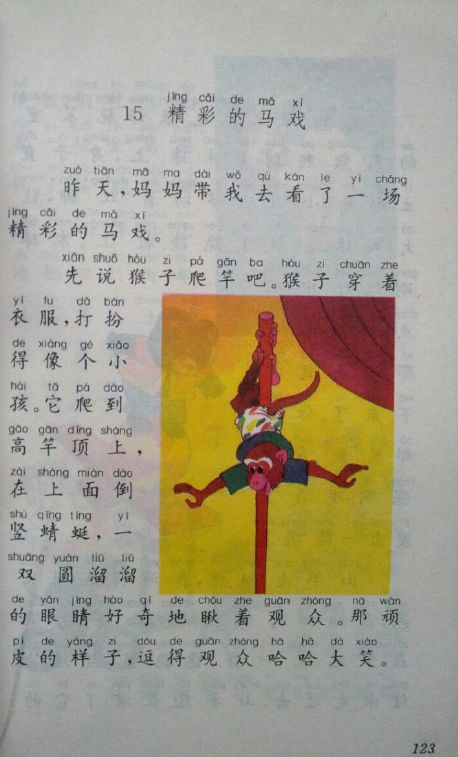 jīng cǎi de mǎ xì
15 精彩的马戏
zuó tiān mā ma dài wǒ qù kàn le yì chǎng
昨天,妈妈带我去看了一场
jīng cǎi de mǎ xì
精彩的马戏。
xiān shuō hóu zi pá gān ba hóu zi chuān zhe
先说猴子爬竿吧。猴子穿着
yī fu dǎ bàn
衣服,打扮
de xiàng gè xiǎo
得像个小
hái tā pá dào
孩。它爬到
gāo gān dǐng shàng
高竿顶上,
zài shàng miàn dào
在上面倒
shù qīng tíng yì
竖蜻蜓,一
shuāng yuán liū liū
双圆溜溜
de yǎn jīng hào qí de chǒu zhe guān zhòng nà wán
的眼睛好奇地瞅着观众。那顽
pí de yàng zi dòu de guān zhòng hā hā dà xiào
皮的样子,逗得观众哈哈大笑。
123